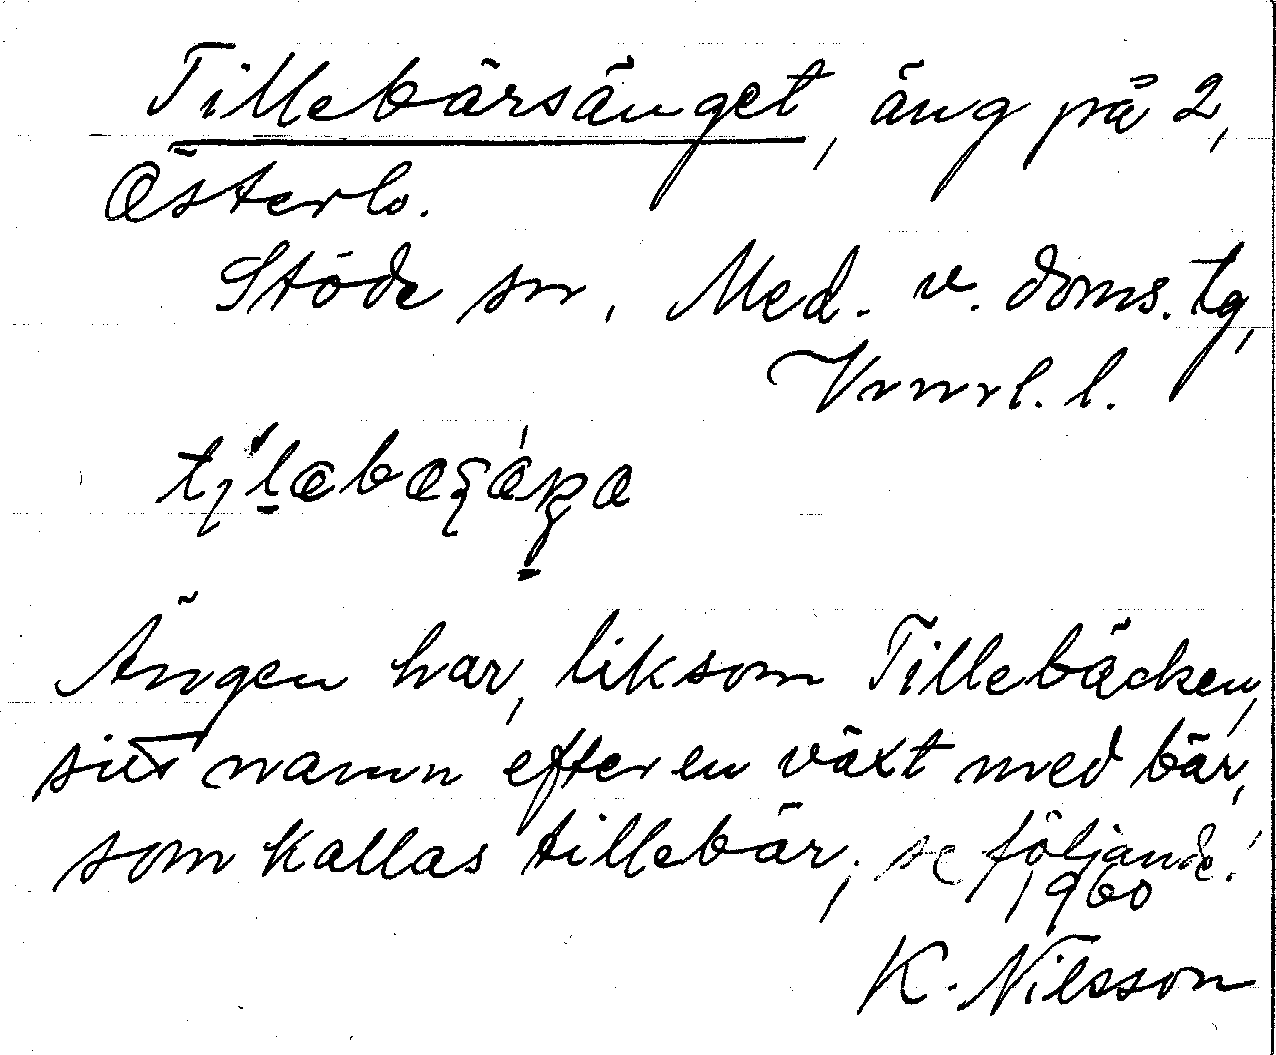 Tillebärsänget, äng på 2,
Österlo.
Stöde sn, Med. v. doms. tg,
Vrnrl. l.
Ängen har, liksom Tillebäcken,
sitt namn efter en växt med bär,
som kallas tillebär; se följande!
1960
K. Nilsson